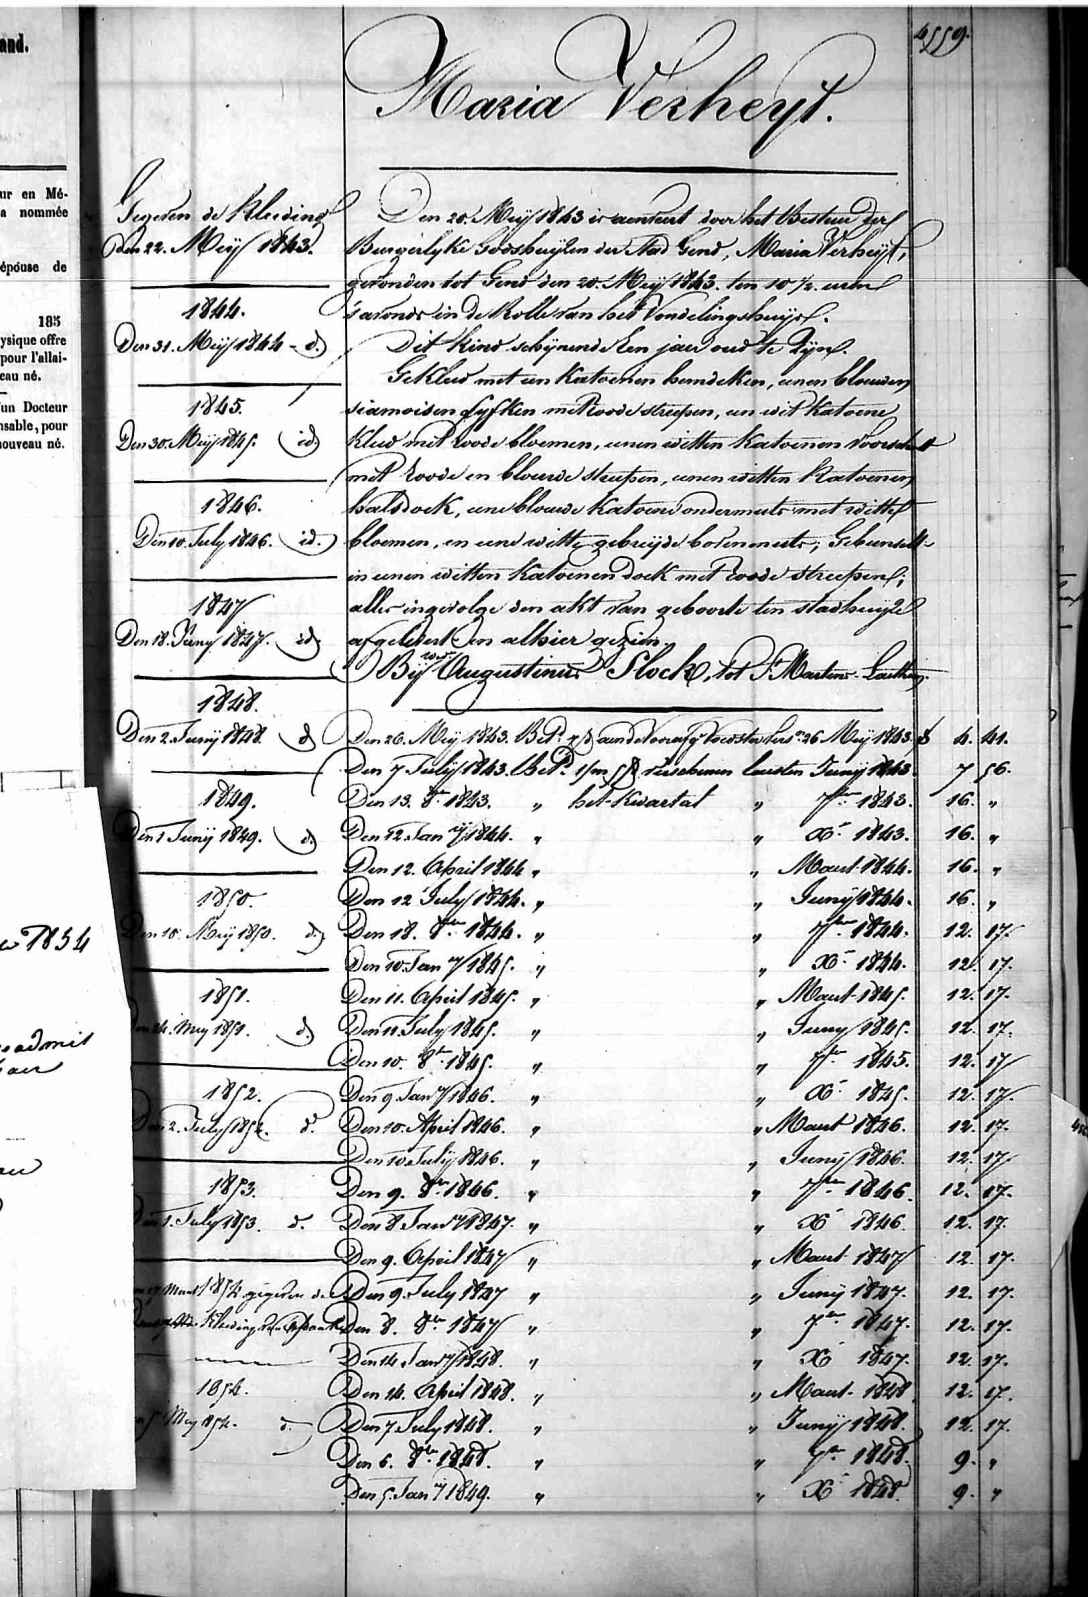 and.
4559.
Maria Verheyt.
ur en Mé-
a nommée
épouse de
185
ysique offre
pour l'allai-
eau né.
un Docteur
nsable, pour
nouveau né.
1854
admis
Gegeven de Kleeding
den 22. Meij 1843.
1844.
Den 31. Meij 1844 - d.
1845.
Den 30. Meij 1845. id
1846.
Den 10. July 1846. id.
1847
Den 18. Juny 1847. id.
1848.
Den 2. Junij 1848. d
1849.
Den 1 Junij 1849. d.
1850.
Den 10. Meij 1850. d
1851.
Mey 1851. d
1852.
2. July 1852. d.
1853.
1. July 1853. d.
17 Maart 1854 gegeven de
Kleeding
1854.
5 Mey 1854. d.
Den 20. Meij 1843 is aenveert door het Bestuur der
Burgerlyke Godshuyzen der stad Gend, Maria Verheyt,
gevonden tot Gend den 20. Meij 1843. ten 10 1/2. uren
s'avonds in de Rolle van het Vondelingshuys.
Dit kind schynende Een jaer oud te Zyn.
Gekleed met een Katoenen hemdeken, eenen blauwen
siamoisen lyfken met roode streepen, een wit katoene
kleed met roode bloemen, eenen witten katoenen voorschoot
met roode en blauwe streepen, eenen witten Katoenen
halsdoek, eene blauwe katoene ondermuts met witte
bloemen, en eene witte gebreyde bovenmuts; Gebunselt
in eenen witten katoenen doek met roode streepen;
alles ingevolge den akt van geboorte ten stadhuyze
afgelevert en alhier gezien.
Bij Augustinus Slock, tot St Martens-Laethem.
Den 26. Meij 1843. Bet. aen de Voorzg Voedster 26 Meij 1843. f 4. 41.
Den 7 July 1843. Bet. verschenen laesten Junij 1843. 7 56.
Den 13. 8er 1843. " het Kwartal " 7ber 1843. 16. "
Den 12 Jany 1844. " " Xr 1843. 16. "
Den 12. April 1844 " " Maart 1844. 16. "
Den 12 July 1844. " " Junij 1844. 16. "
Den 18. 8ber 1844. " " 7ber 1844. 12. 17.
Den 10. Jany 1845. " " Xr 1844. 12. 17.
Den 11. April 1845. " " Maart 1845. 12. 17.
Den 11. July 1845. " " Juny 1845. 12. 17.
Den 10. 8br 1845. " " 7ber 1845. 12. 17
Den 9 Jany 1846. " " Xr 1845. 12. 17.
Den 10. April 1846. " " Maart 1846. 12. 17.
Den 10 July 1846. " " Junij 1846. 12. 17
Den 9. 8ber 1846. " " 7ber 1846 12. 17.
Den 8 Jany 1847. " " Xr 1846. 12. 17.
Den 9. April 1847 " " Maart 1847 12. 17.
Den 9. July 1847 " " Junij 1847. 12. 17.
Den 8. 8ber 1847 " " 7ber 1847. 12. 17.
Den 14 Jany 1848. " " Xr 1847. 12. 17.
Den 14. April 1848. " " Maart 1848 12. 17.
Den 7 July 1848. " " Junij 1848. 12. 17.
Den 6. 8ber 1848. " " 7ber 1848. 9. "
Den 5. Jany 1849. " " Xr 1848. 9. "